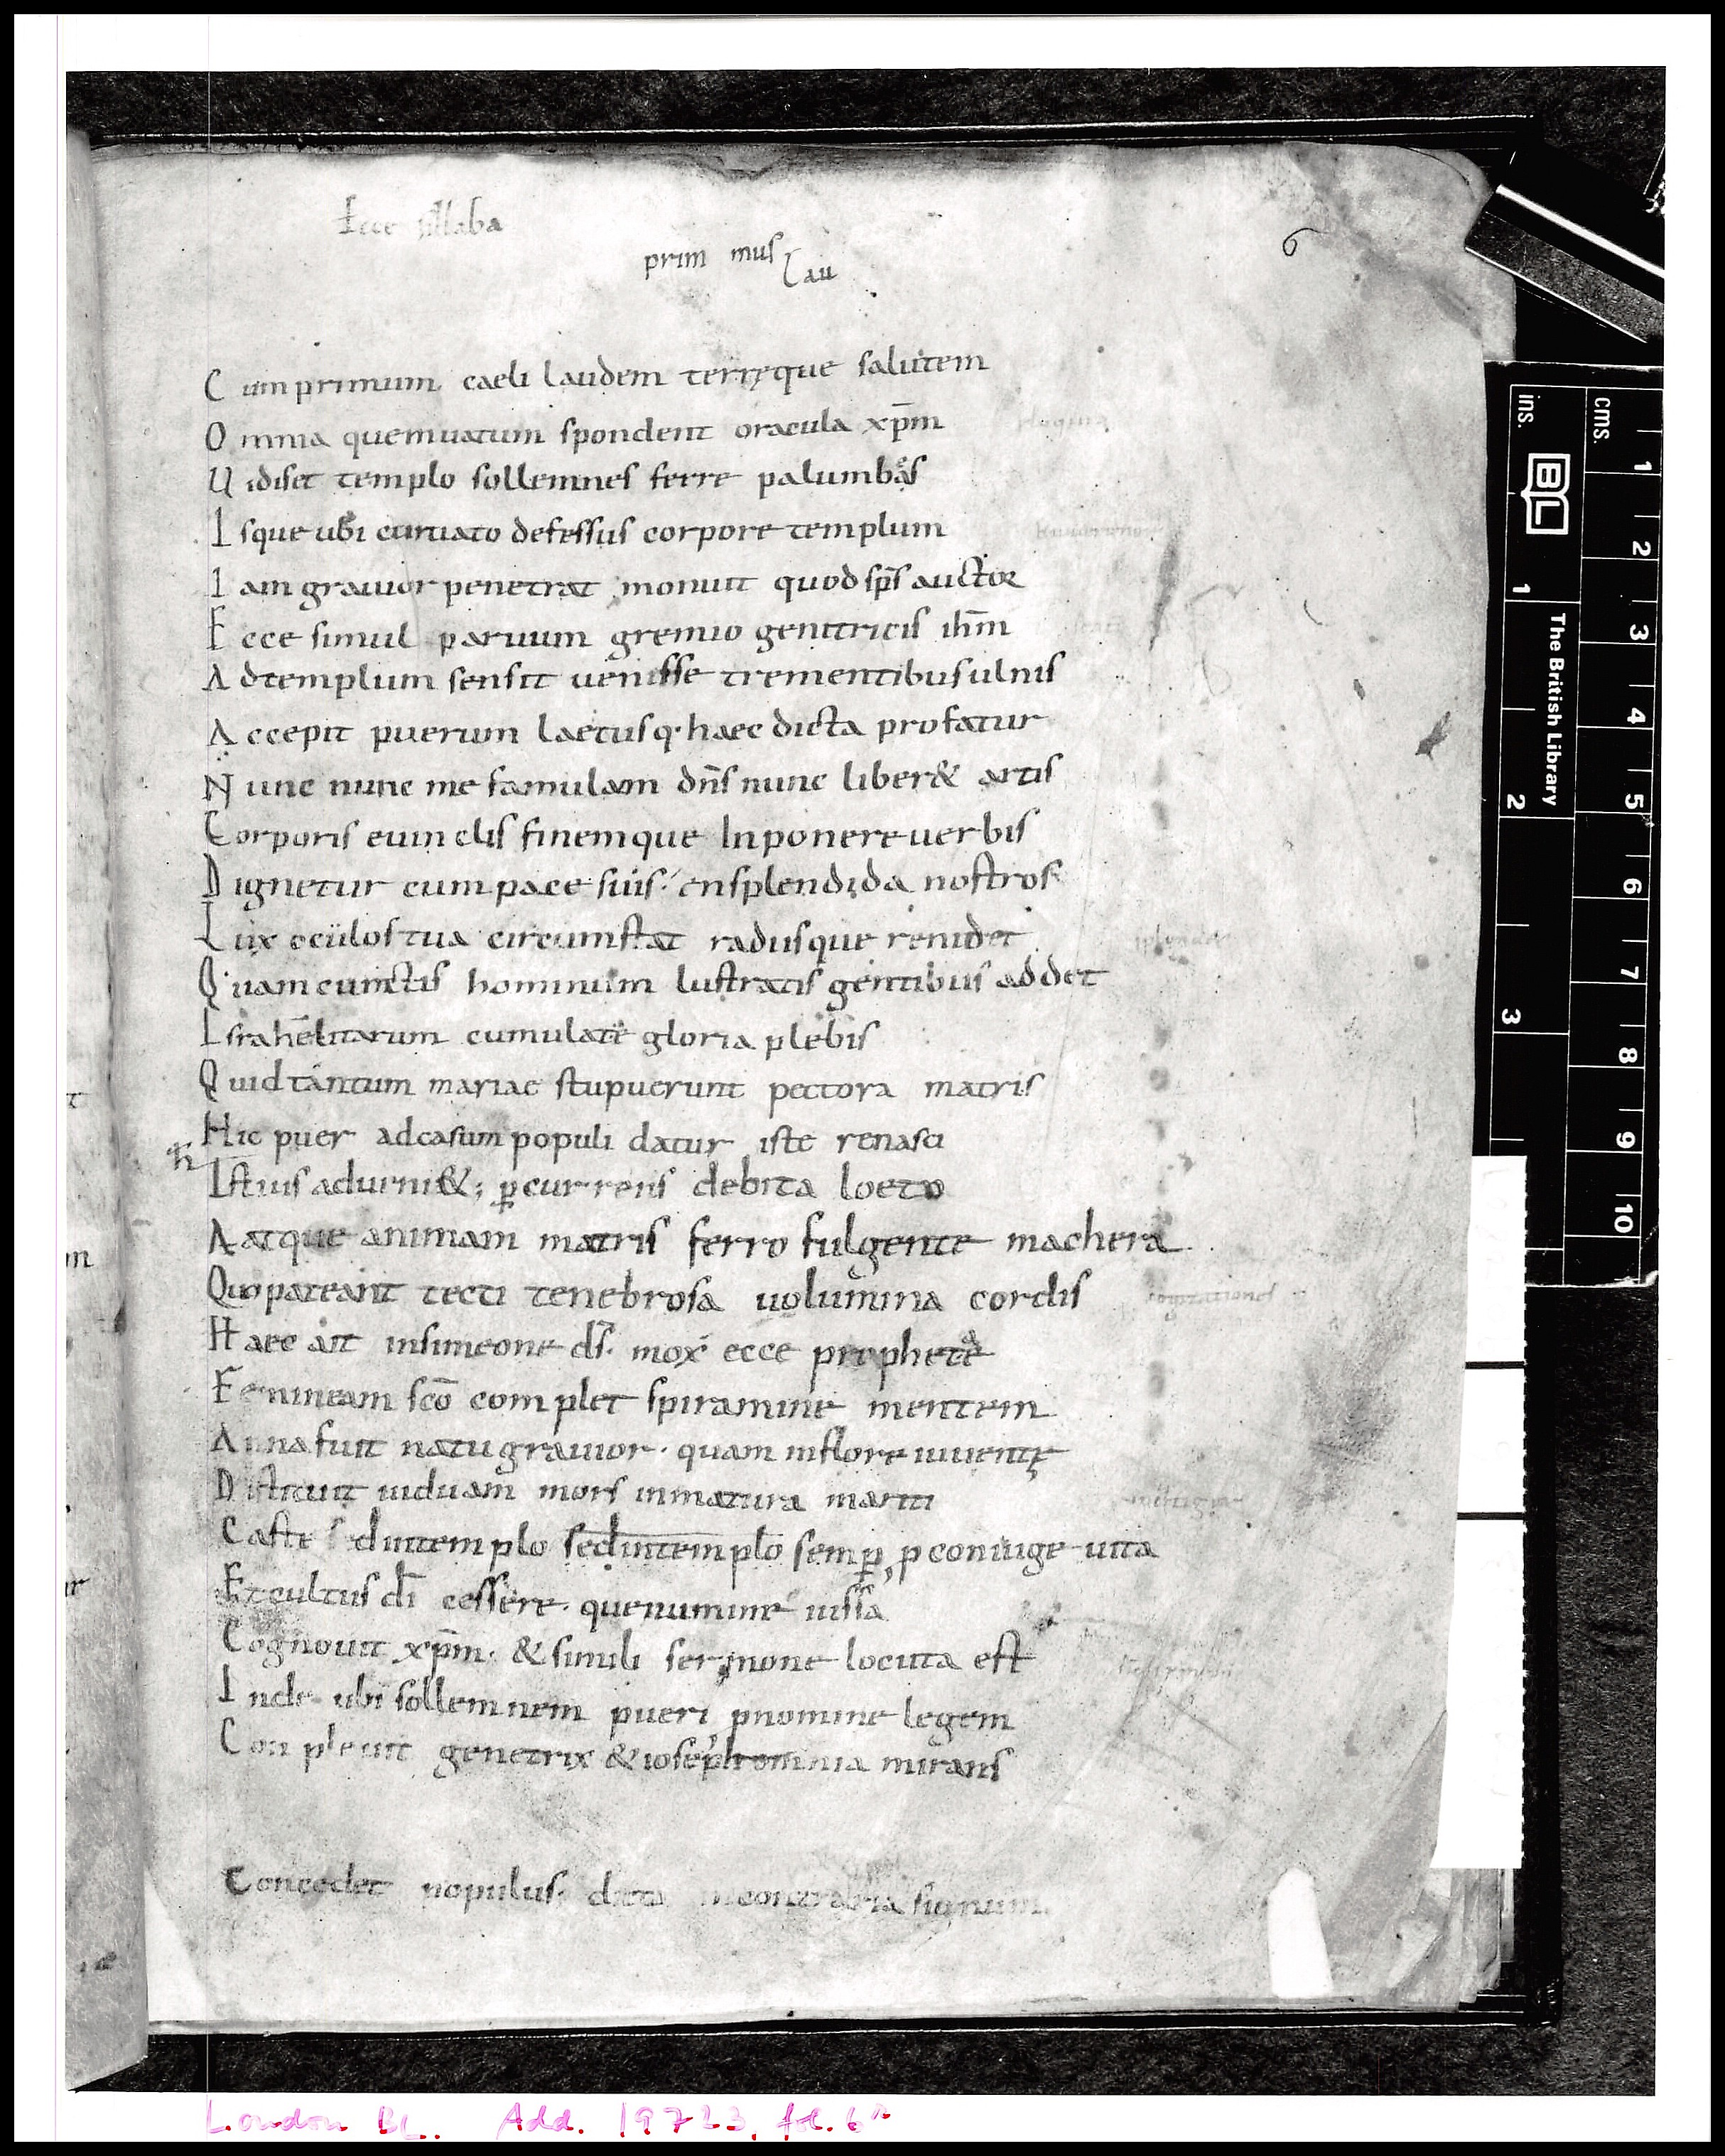 Ecce sillaba
prim mus
au
6
C um primum caeli laudem terręque salutem
O mnia quem uatum spondent oracula xp̄m
U idiset templo sollemnes ferre palumbas
I sque ubi curuato defessus corpore templum
I am grauior penetrat monuit quod sp̄s auctor
E cce simul paruum gremio genitricis ih̄m
A d templum sensit uenisse trementibus ulnis
A ccepit puerum laetusq· haec dicta profatur
N unc nunc me famulam dn̄s nunc liber& artis
Corporis e uinclis finemque Inponere uerbis
D ignetur cum pace suis· en splendida nostros
L ux oculos tua circumstat radiisque renidet
Q uam cunctis hominum lustratis gentibus addet
I srahelitarum cumulate gloria plebis
Q uid tantum mariae stupuerunt pectora matris
Hic puer ad casum populi datur iste renasci
h̄
Istius adueni&; p̱currens debita loeto
A atque animam matris ferro fulgente machera
Quo pateant tecti tenebrosa uolumina cordis
H aec ait in simeone ds̄· mox ecce prophete
Femineam sc̄o complet spiramine mentem
A nna fuit natu grauior· quam in flore iuuentę
D istituit uiduam mors inmatura mariti
C aste sed in templo sed in templo semp̱ p coniuge uita
Et cultus dī cessere· que numine iussa
Cognouit xp̄m· & simili sermone locuta est
I nde ubi sollemnem pueri pnomine legem
Con pleuit genetrix & ioseph omnia mirans
Concedet populus· dicta contraria signum
ins.
cms.
BL
The British Library
1
2
3
1
2
3
4
5
6
7
8
9
10
London BL. Add. 19723, fol. 6r